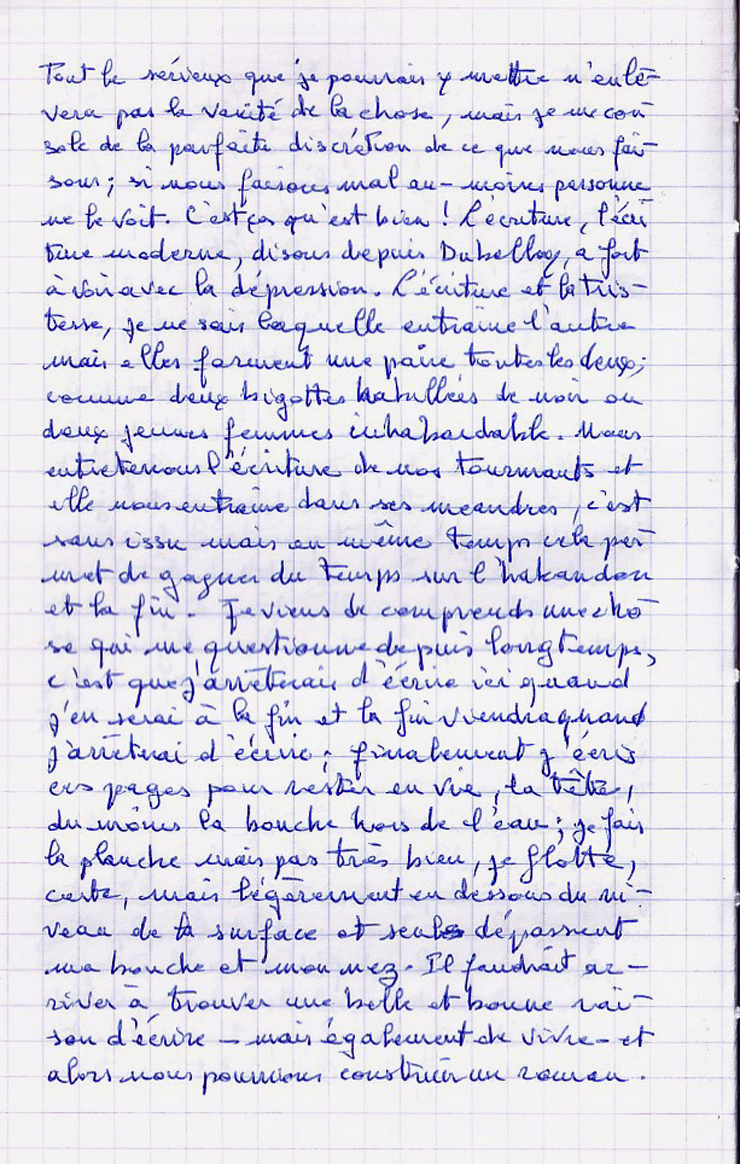 Tout le sérieux que je pourrais y mettre n'enlè-
vera pas la vanité de la chose, mais je me con-
sole de la parfaite discrétion de ce que nous fai-
sons ; si nous faisons mal au-moins personne
ne le voit. C'est ça qu'est bien ! L'écriture, l'écri
ture moderne, disons depuis Dubellay, a fort
à voir avec la dépression. L'écriture et la tris-
tesse, je ne sais laquelle entraine l'autre
mais elles forment une paire toutes les deux ;
comme deux bigottes habillées de noir ou
deux jeunes femmes inhabordable. Nous
entretenons l'écriture de nos tourmants et
elle nous entraine dans ses meandres, c'est
sans issu mais en même temps cela per-
met de gagner du temps sur l'habandon
et la fin. Je viens de comprends une cho-
se qui me questionne depuis longtemps,
c'est que j'arrêterais d'écrire ici quand
j'en serai à la fin et la fin viendra quand
j'arrêterai d'écrire ; finalement j'écris
ces pages pour rester en vie, la tête,
du moins la bouche hors de l'eau ; je fais
la planche mais pas très bien, je flotte,
certe, mais légèrement en dessous du ni-
veau de la surface et seuls dépassent
ma bouche et mon nez. Il faudrait ar-
river à trouver une belle et bonne rai-
son d'écrire — mais également de vivre — et
alors nous pourrions construir un roman.